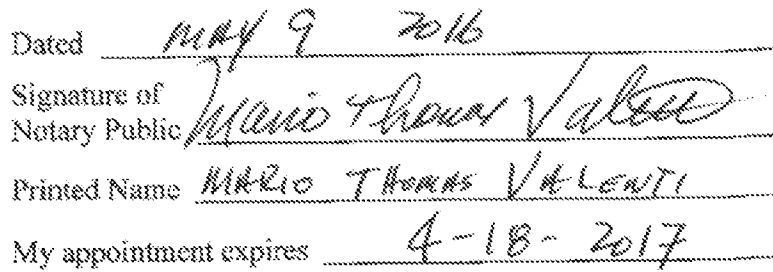 Dated MAY 9 2016
Signature of
Notary Public Mario Thomas Valenti
Printed Name MARIO THOMAS VALENTI
My appointment expires 4-18-2017